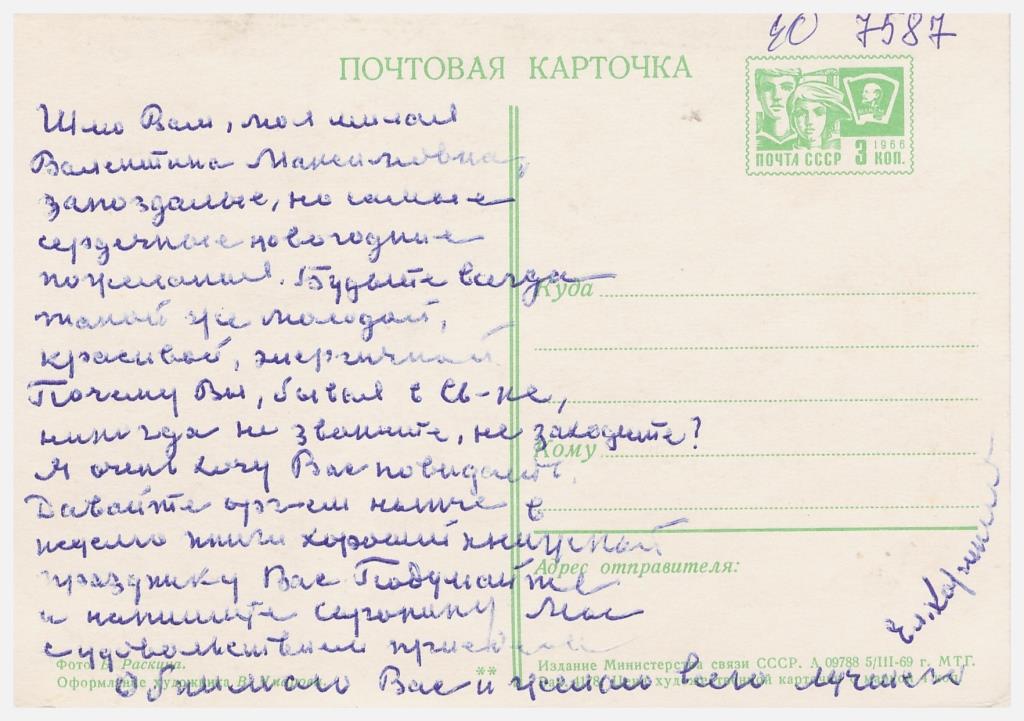 7587
ПОЧТОВАЯ КАРТОЧКА
ПОЧТА СССР 3 1966 КОП.
Шлю Вам, моя милая
Валентина Максимовна,
запоздалые, но самые
сердечные новогодние
пожелания. Будьте всегда
такой же молодой,
красивой, энергичной
Почему Вы, бывая в Св-ке,
никогда не звоните, не заходите?
Я очень хочу Вас повидать.
Давайте орг-ем нынче в
неделю книги хороший книжный
праздник у Вас Подумайте
и напишите Мы с
удовольствием приедем
Обнимаю Вас и желаю всего лучшего
Куда
Кому
Адрес отправителя:
Фото В. Раскина.
Оформление художника
**
Издание Министерства связи СССР. А 09788 5/III-69 г. МТГ.